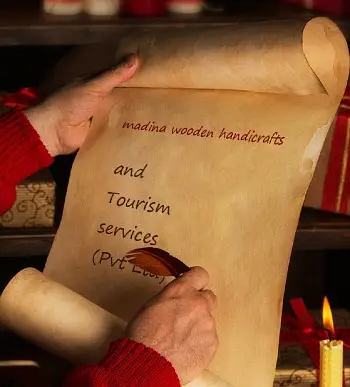 madina wooden handicrafts
and
Tourism
services
(Pvt Ltd)